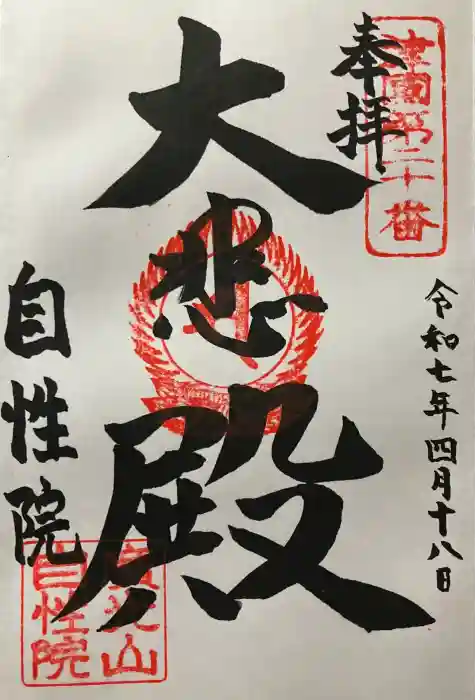 奉拝
第二十番
大悲殿
令和七年四月十八日
自性院
山
自性院